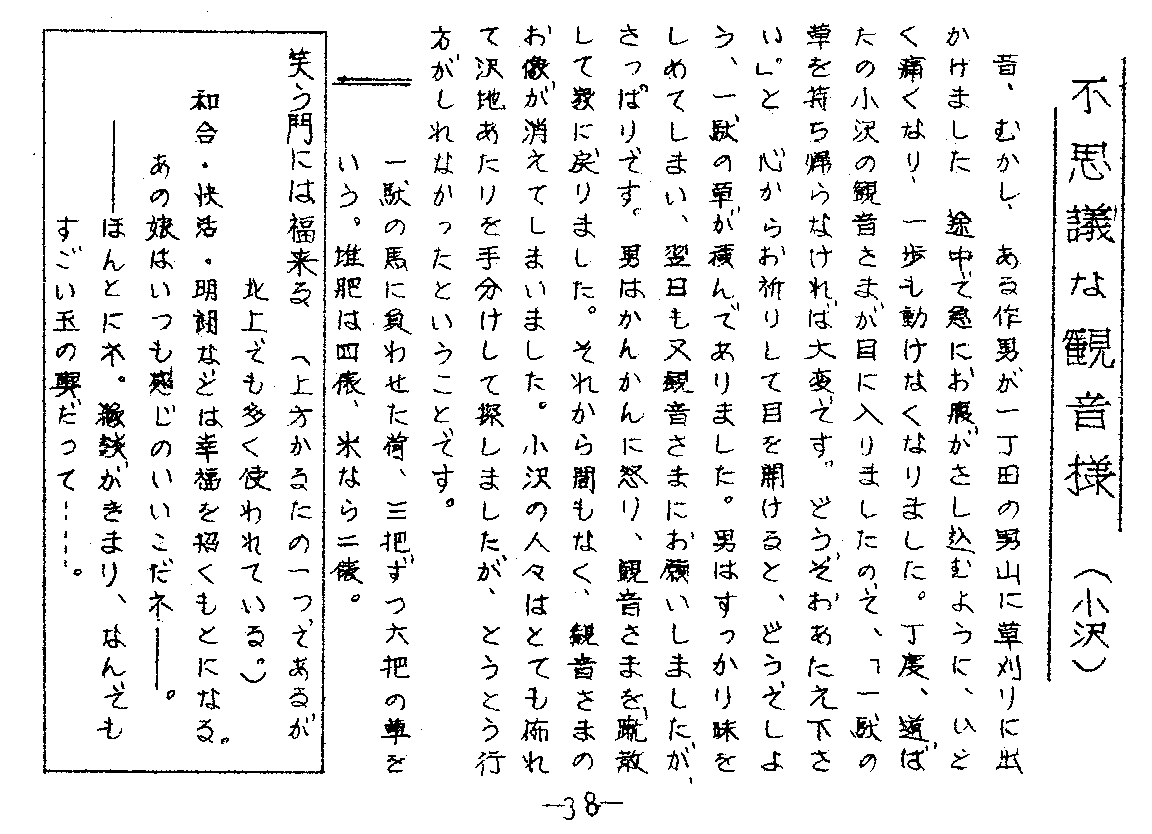 不思議な観音様　（小沢）
昔、むかし、ある作男が一丁田の男山に草刈りに出
かけました　途中で急にお腹がさし込むように、ひど
く痛くなり、一歩も動けなくなりました。丁度、道ば
たの小沢の観音さまが目に入りましたので、「一駄の
草を持ち帰らなければ大変です。どうぞおあたえ下さ
い」。と　心からお祈りして目を開けると、どうでしょ
う、一駄の草が積んでありました。男はすっかり味を
しめてしまい、翌日も又観音さまにお願いしましたが、
さっぱりです。男はかんかんに怒り、観音さまを蹴散
して家に戻りました。それから間もなく、観音さまの
お像が消えてしまいました。小沢の人々はとても怖れ
て沢地あたりを手分けして探しましたが、とうとう行
方がしれなかったということです。
一駄の馬に負わせた荷、三把ずつ六把の草を
いう。堆肥は四俵、米なら二俵。
笑う門には福来る　（上方かるたの一つであるが
北上でも多く使われている。）
和合・快活・明朗などは幸福を招くもとになる。
あの娘はいつも感じのいいこだネ――。
――ほんとにネ。縁談がきまり、なんでも
すごい玉の輿だって-----。
-38-